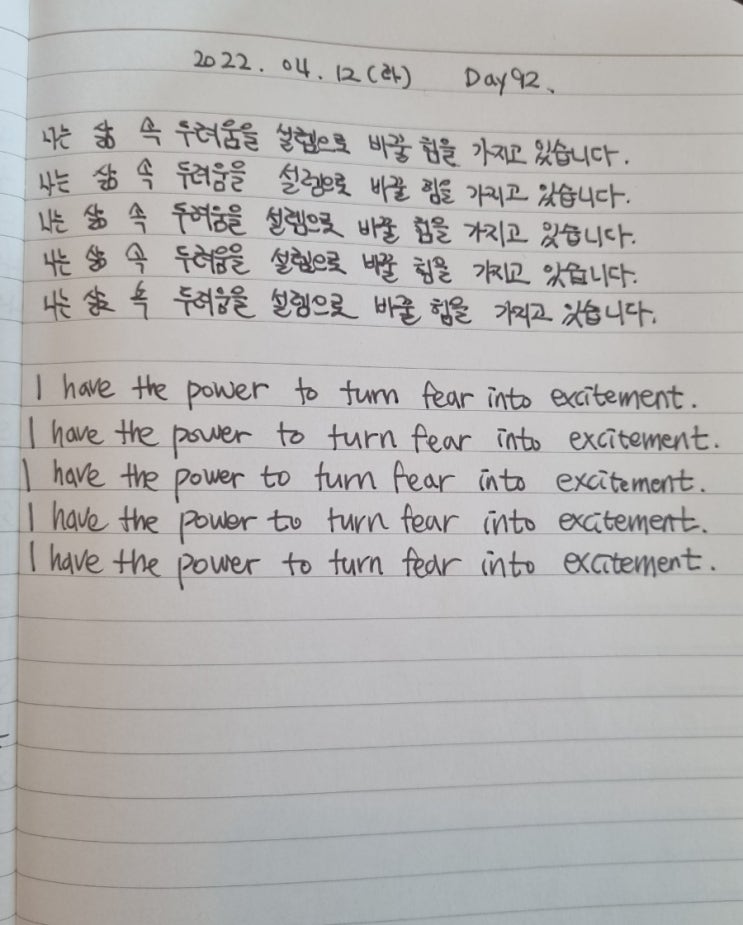 2022. 04. 12 (화) Day 92.
나는 삶 속 두려움을 설렘으로 바꿀 힘을 가지고 있습니다.
나는 삶 속 두려움을 설렘으로 바꿀 힘을 가지고 있습니다.
나는 삶 속 두려움을 설렘으로 바꿀 힘을 가지고 있습니다.
나는 삶 속 두려움을 설렘으로 바꿀 힘을 가지고 있습니다.
나는 삶 속 두려움을 설렘으로 바꿀 힘을 가지고 있습니다.
I have the power to turn fear into excitement.
I have the power to turn fear into excitement.
I have the power to turn fear into excitement.
I have the power to turn fear into excitement.
I have the power to turn fear into excitement.